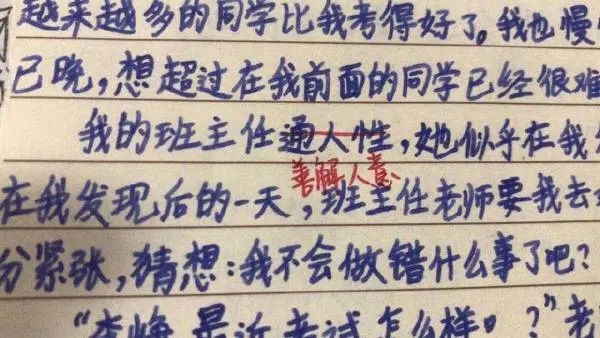 越来越多的同学比我考得好了。我也慢
已晚，想超过在我前面的同学已经很难
我的班主任通人性，她似乎在我
善解人意
在我发现后的一天，班主任老师要我去
分紧张，猜想：我不会做错什么事了吧？
最近考试怎么样。？”老